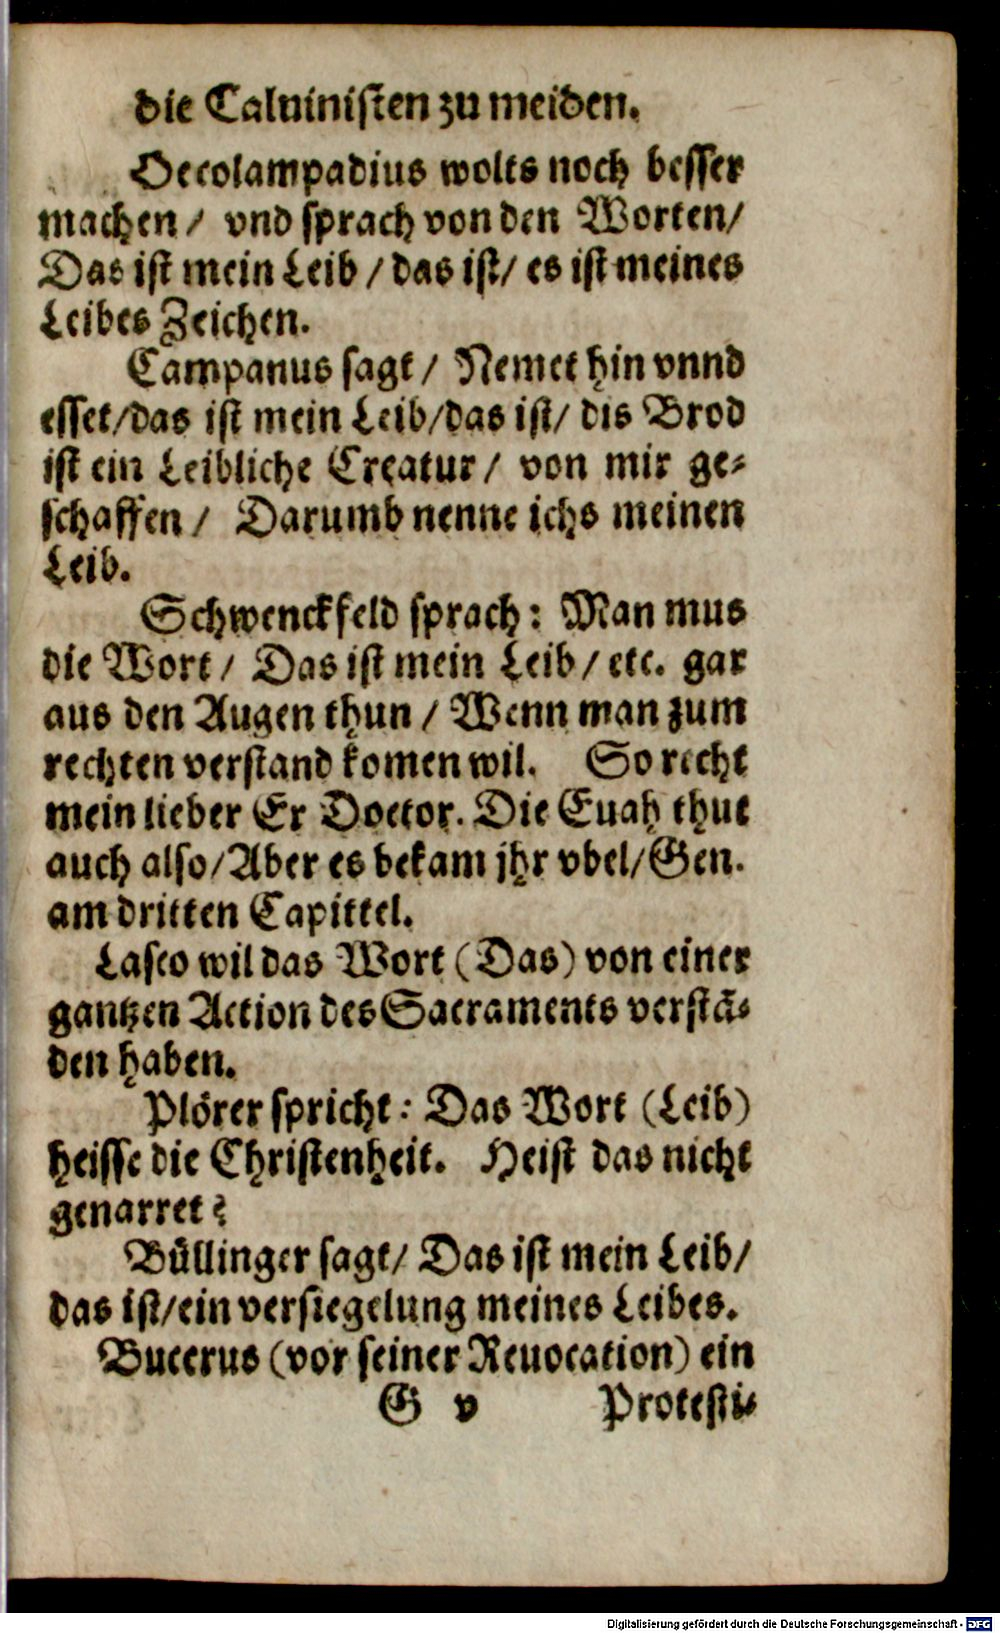 die Caluinisten zu meiden.
Oecolampadius wolts noch besser
machen / vnd sprach von den Worten/
Das ist mein Leib / das ist/ es ist meines
Leibes Zeichen.
Campanus sagt / Nemet hin vnnd
esset/das ist mein Leib/das ist/ dis Brod
ist ein Leibliche Creatur / von mir ge-
schaffen / Darumb nenne ichs meinen
Leib.
Schwenckfeld sprach: Man mus
die Wort / Das ist mein Leib / etc. gar
aus den Augen thun / Wenn man zum
rechten verstand komen wil. So recht
mein lieber Er Doctor. Die Euah thut
auch also/Aber es bekam jhr vbel/Gen.
am dritten Capittel.
Lasco wil das Wort (Das) von einer
gantzen Action des Sacraments verstā-
den haben.
Plörer spricht: Das Wort (Leib)
heisse die Christenheit. Heist das nicht
genarret?
Büllinger sagt/ Das ist mein Leib/
das ist/ein versiegelung meines Leibes.
Bucerus (vor seiner Reuocation) ein
G v Protesti-
Digitalisierung gefördert durch die Deutsche Forschungsgemeinschaft - DFG